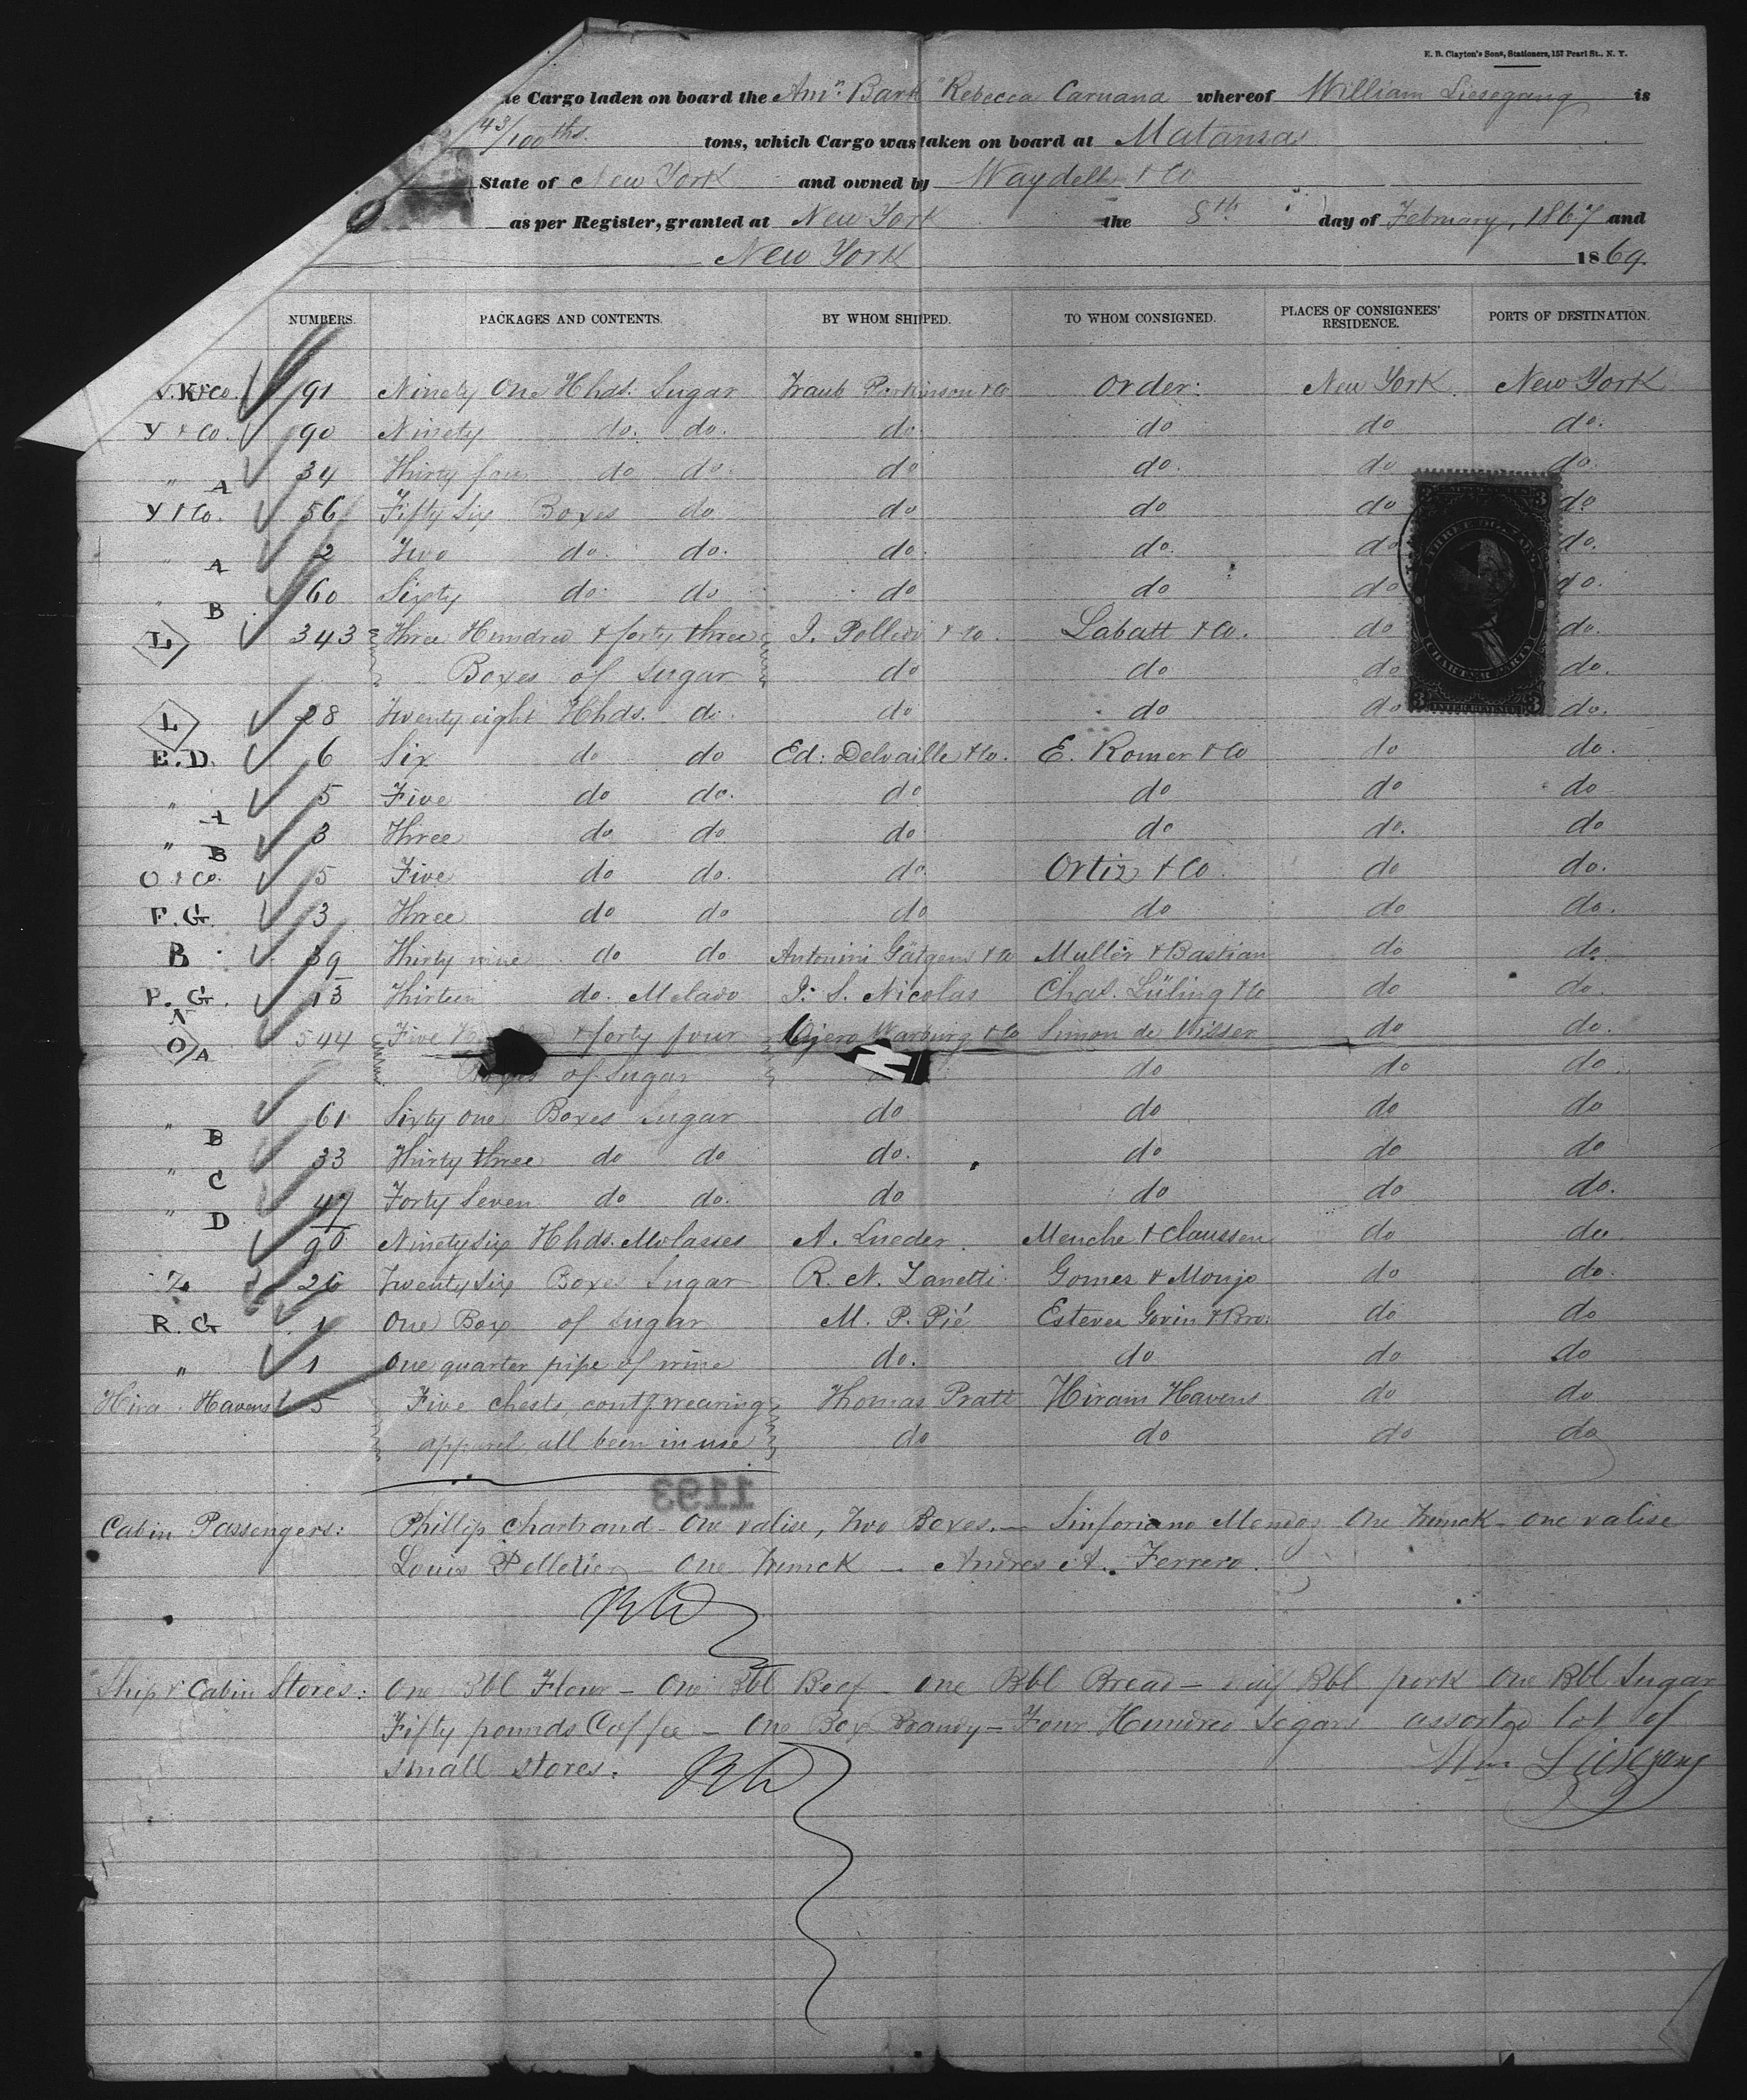 E. B. Clayton's Sons, Stationers, 157 Pearl St., N. Y.
Cargo laden on board the Amn. Bark "Rebecca Caruana whereof William Liesegang is
43/100ths. tons, which Cargo was taken on board at Matansas
State of New York and owned by Waydell & Co
as per Register, granted at New York the 8th day of February, 1867 and
New York 1869.
NUMBERS. PACKAGES AND CONTENTS. BY WHOM SHIPPED. TO WHOM CONSIGNED. PLACES OF CONSIGNEES' RESIDENCE. PORTS OF DESTINATION.
& Co. 91 Ninety One Hhds. Sugar Traub Parkinson & Co Order: New York New York
Y & Co. 90 Ninety do. do. do. do do do.
" A 34 Thirty four do do. do do. do do.
Y & Co. 56 Fifty Six Boxes do do do do do
" A 2 Two do. do. do. do. do do.
" B 60 Sixty do. do do do do do.
L 343 Three Hundred & forty three J. Polledo & Co. Labatt & Co. do do.
Boxes of Sugar do do do do.
L 28 Twenty eight Hhds. do. do do do do.
E. D. 6 Six do do Ed: Delvaille & Co. E. Romer & Co do do.
" A 5 Five do do. do do do do
" B 3 Three do do. do do do. do
O & Co. 5 Five do do. do. Ortiz & Co. do do.
F. G. 3 Three do do do do do do.
B 39 Thirty nine do do Antonini Gätgens & Co Mullér & Bastian do do.
P. G. 13 Thirteen do. Melado J. S. Nicolas Chas. Lüling & Co do do.
N O A 544 Five & forty four Warburg & Co Simon de Visser do do.
Boxes of Sugar do do do
" B 61 Sixty one Boxes Sugar do do do do
" C 33 Thirty three do do do. do do do
" D 47 Forty Seven do do. do do do do.
96 Ninety Six Hhds. Molasses A. Lueder. Menche & Claussen do do.
Z. 26 Twenty Six Boxes Sugar R. N. Zanetti Gomez & Monjo do do.
R. G 1 One Box of Sugar M. P. Pié Esteves Govin & Bro: do do
" 1 One quarter pipe of wine do. do do do
Hiram Havens 5 Five chests, contg wearing Thomas Pratt Hiram Havens do do
apparel all been in use do do do do
1193
Cabin Passengers: Phillip Chartrand - One valise, Two Boxes. - Sinforiano Mendoz One Trunck - one valise
Louis Pelletier - One Trunck - Andres A. Ferrero.
Ship & Cabin Stores: One Bbl Flour - One Bbl Beef - One Bbl Bread - half Bbl pork One Bbl Sugar
Fifty pounds Coffee - One Box Brandy - Four Hundred Segars assorted lot of
small stores.
Wm Liesegang
THREE DOLLARS
CHARTER PARTY
INTER. REVENUE
3 3 3